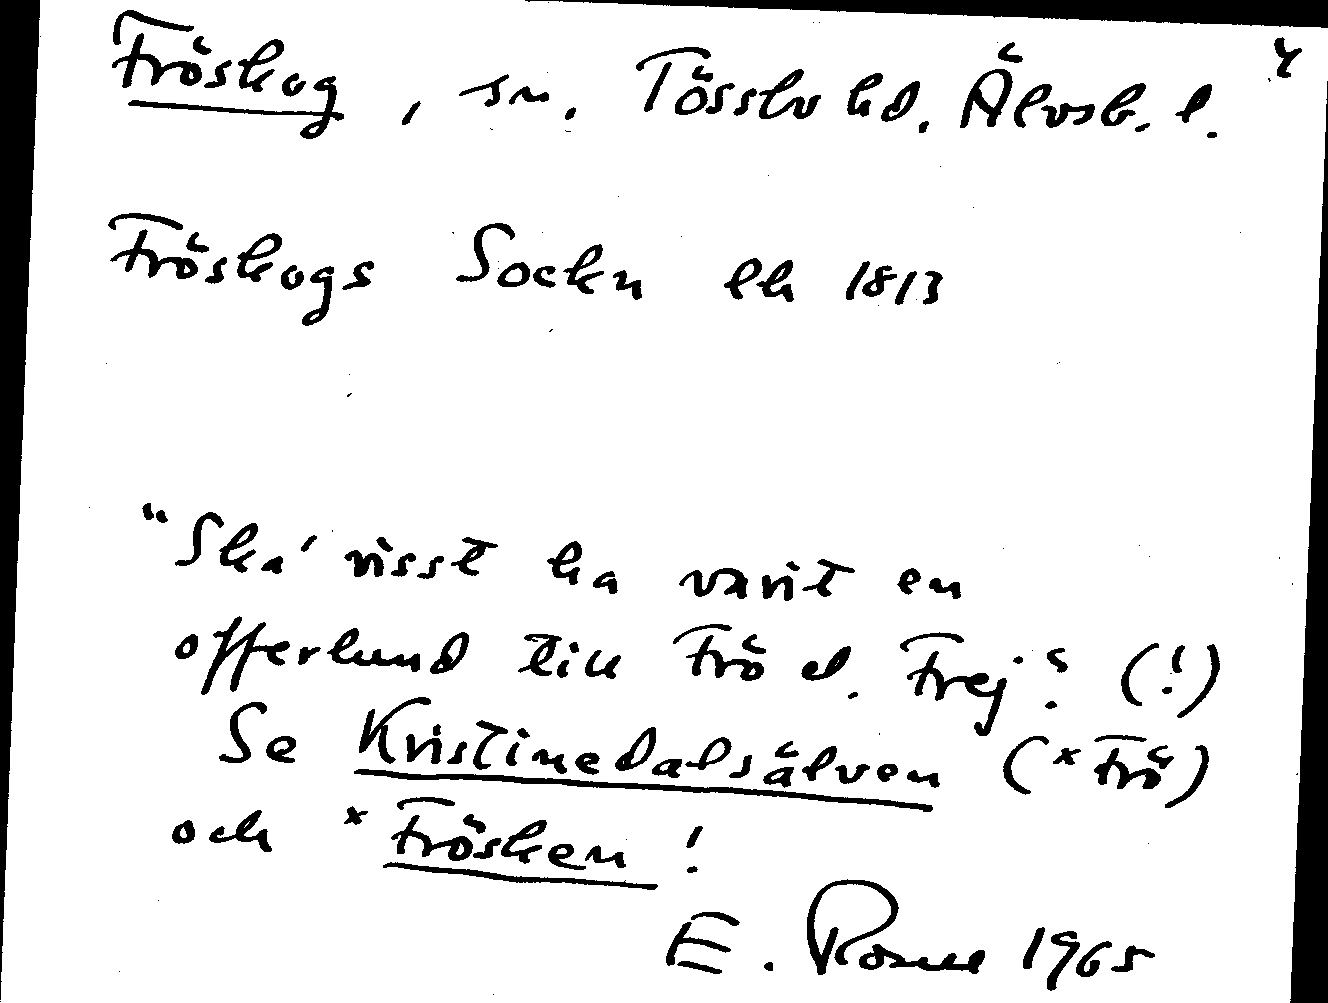 Fröskog, sn. Tössbo hd. Älvsb. l. 4
Fröskogs Sockn ek 1813
"Ska' visst ha varit en
offerlund till Frö el. Frej". (!)
Se Kristinedalsälven (*Frö)
och *Frösken!
E. 1965